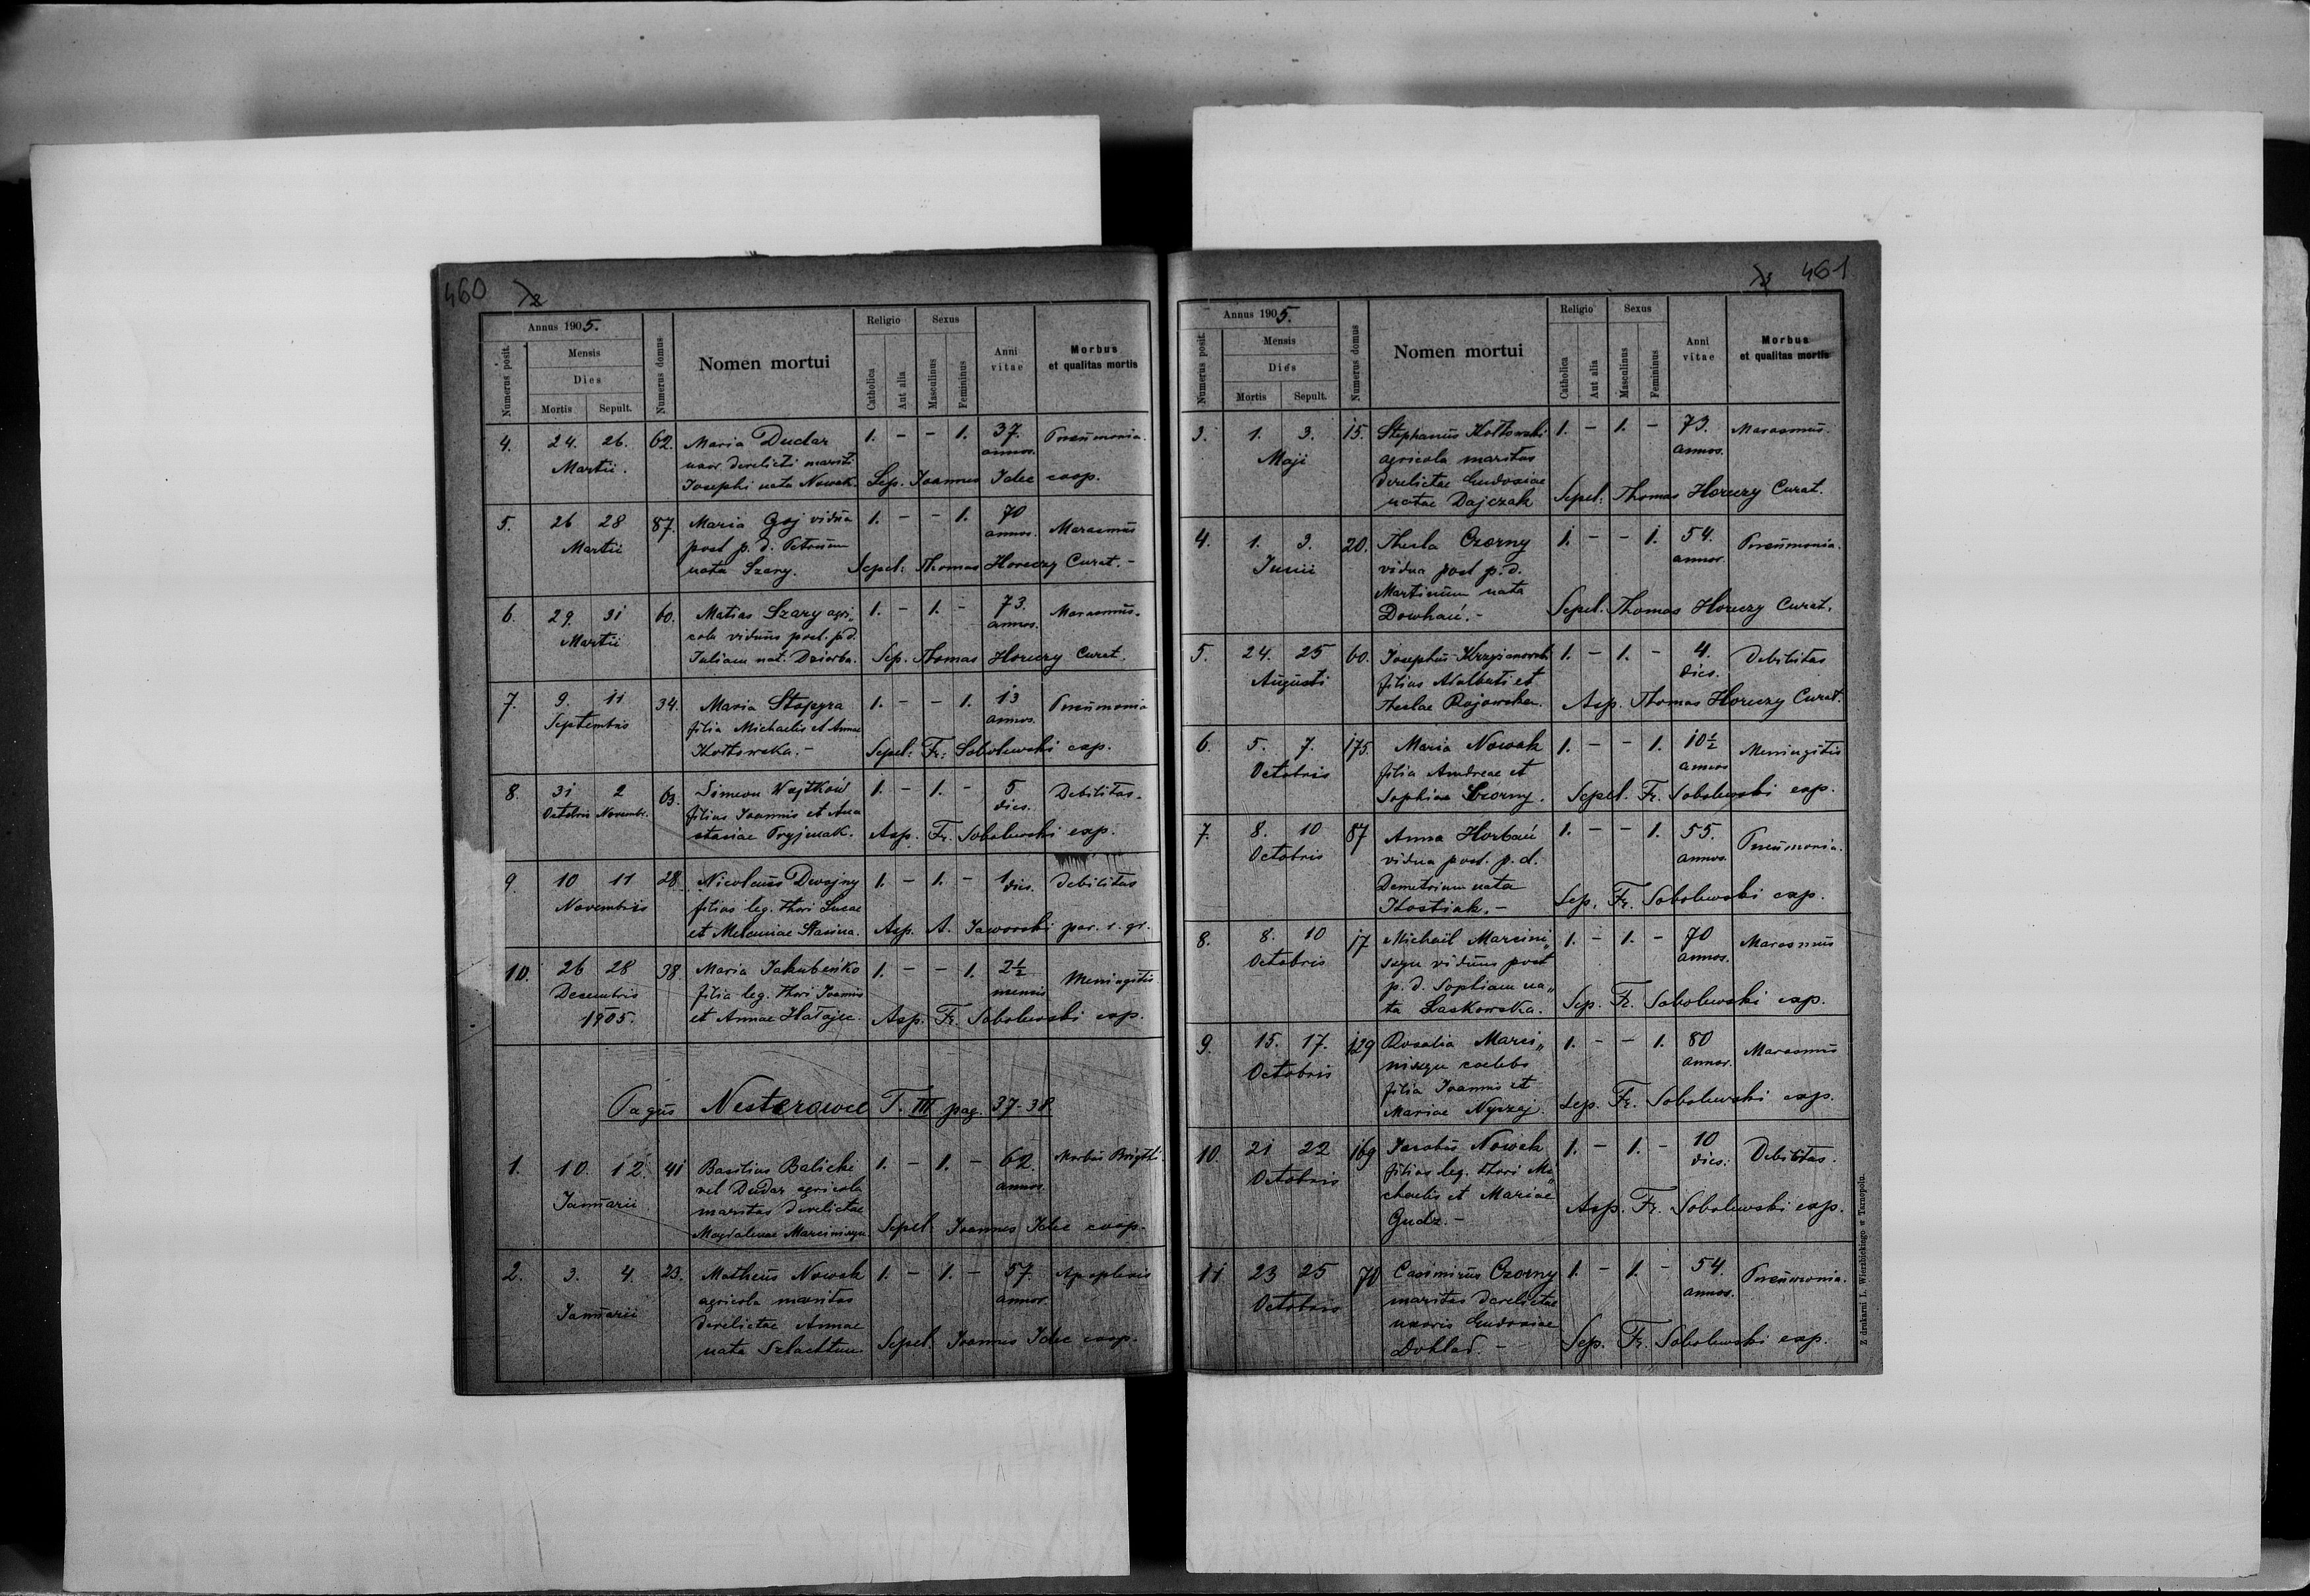 460
72
Annus 1905.
Numerus posit.
Mensis
Dies
Mortis
Sepult.
Numerus domus
Nomen mortui
Religio
Catholica
Aut alia
Sexus
Masculinus
Femininus
Anni vitae
Morbus et qualitas mortis
4. 24. 26. 62. Maria Dudar 1. - - 1. 37. Pneumonia.
Martii. uxor derelicti mariti annos.
Josephi nata Nowak. Sep. Joannes Idec coop.
5. 26 28 87. Maria Gaj vidua 1. - - 1. 70 Marasmus
Martii post p. d. Petrum annos.
nata Szary. Sepel: Thomas Horeczy Curat. -
6. 29. 31 60. Matias Szary agri„ 1. - 1. - 73. Marasmus.
Martii cola viduus post. p d. annos.
Juliam nat. Dziorba. Sep. Thomas Horeczy Curat.
7. 9. 11 34. Maria Stopyra 1. - - 1. 13 Pneumonia
Septembris filia Michaelis et Annae annos.
Kołtowska. - Sepel: Fr: Sobolewski exp.
8. 31 2 63. Simeon Wojtków 1. - 1. - 5 Debilitas.
Octobris Novembr. filius Joannis et Ana dies.
stasiae Pryjmak. Asp. Fr. Sobolewski exp.
9. 10 11 28. Nicolaus Dwojny 1. - 1. - 1 Debilitas
Novembris filius leg. thori Lucae dies.
et Melaniae Stasina. Asp. A. Jaworski par. r. gr.
10. 26 28 38. Maria Jakubeńko 1. - - 1. 2½ Meningitis
Decembris filia leg. thori Joannis mensis
1905. et Annae Hałajec. Asp. Fr. Sobolewski exp.
Pagus Nesterowce T. III pag. 37-38
1. 10. 12. 41 Basilius Balicki 1. - 1. - 62. Morbus Brigthi.
Januarii vel Dudar agricola annos.
maritus derelictae
Magdalenae Marciniszyn Sepel. Joannes Idec coop.
2. 3. 4. 23. Matheus Nowak 1. - 1. - 57. Apoplexis
Januarii agricola maritus annor.
derelictae Annae
nata Szlachtun. Sepel. Joannes Idec coop.
73 461
Annus 1905.
Numerus posit.
Mensis
Dies
Mortis
Sepult.
Numerus domus
Nomen mortui
Religio
Catholica
Aut alia
Sexus
Masculinus
Femininus
Anni vitae
Morbus et qualitas mortis
3. 1. 3. 15. Stephanus Kołtowski 1. - 1. - 73. Marasmus.
Maji agricola maritus annos.
derelictae Eudoxiae
natae Dajczak Sepel: Thomas Horeczy Curat.
4. 1. 3. 20. Thecla Czorny 1. - - 1. 54. Pneumonia.
Junii vidua post p. d. annor.
Martinum nata
Dowhań. - Sepel. Thomas Horeczy Curat.
5. 24. 25 60. Josephus Krzyżanowski 1. - 1. - 4. Debilitas
Augusti filius Adalberti et dies.
Theclae Rajowska. Asp. Thomas Horeczy Curat.
6. 5. 7. 175. Maria Nowak 1. - - 1. 10½ Meningitis
Octobris filia Andreae et annos
Sophiae Czorny. Sepel. Fr. Sobolewski exp.
7. 8. 10 87 Anna Horbań 1. - - 1. 55. Pneumonia.
Octobris vidua post. p. d. annos.
Demetrium nata
Kostiak. - Sep. Fr. Sobolewski exp.
8. 8. 10 17 Michaël Marcini„ 1. - 1. - 70 Marasmus
Octobris szyn viduus post annos.
p. d. Sophiam na„
ta Laskowska. Sep. Fr. Sobolewski exp.
9. 15. 17. 129 Rosalia Marci„ 1. - - 1. 80 Marasmus
Octobris niszyn caelebs annor.
filia Joannis et
Mariae Nyczaj. Sep. Fr. Sobolewski exp.
10. 21 22 169 Jacobus Nowak 1. - 1. - 10 Debilitas.
Octobris filius leg. thori Mi„ dies.
chaelis et Mariae
Gudz. - Asp. Fr. Sobolewski exp.
11 23 25 70 Casimirus Czorny 1. - 1. - 54. Pneumonia.
Octobris maritus derelictae annos.
uxoris Eudoxiae
Dokład. - Sep. Fr. Sobolewski exp.
Z drukarni L. Wierzbickiego w Tarnopolu.